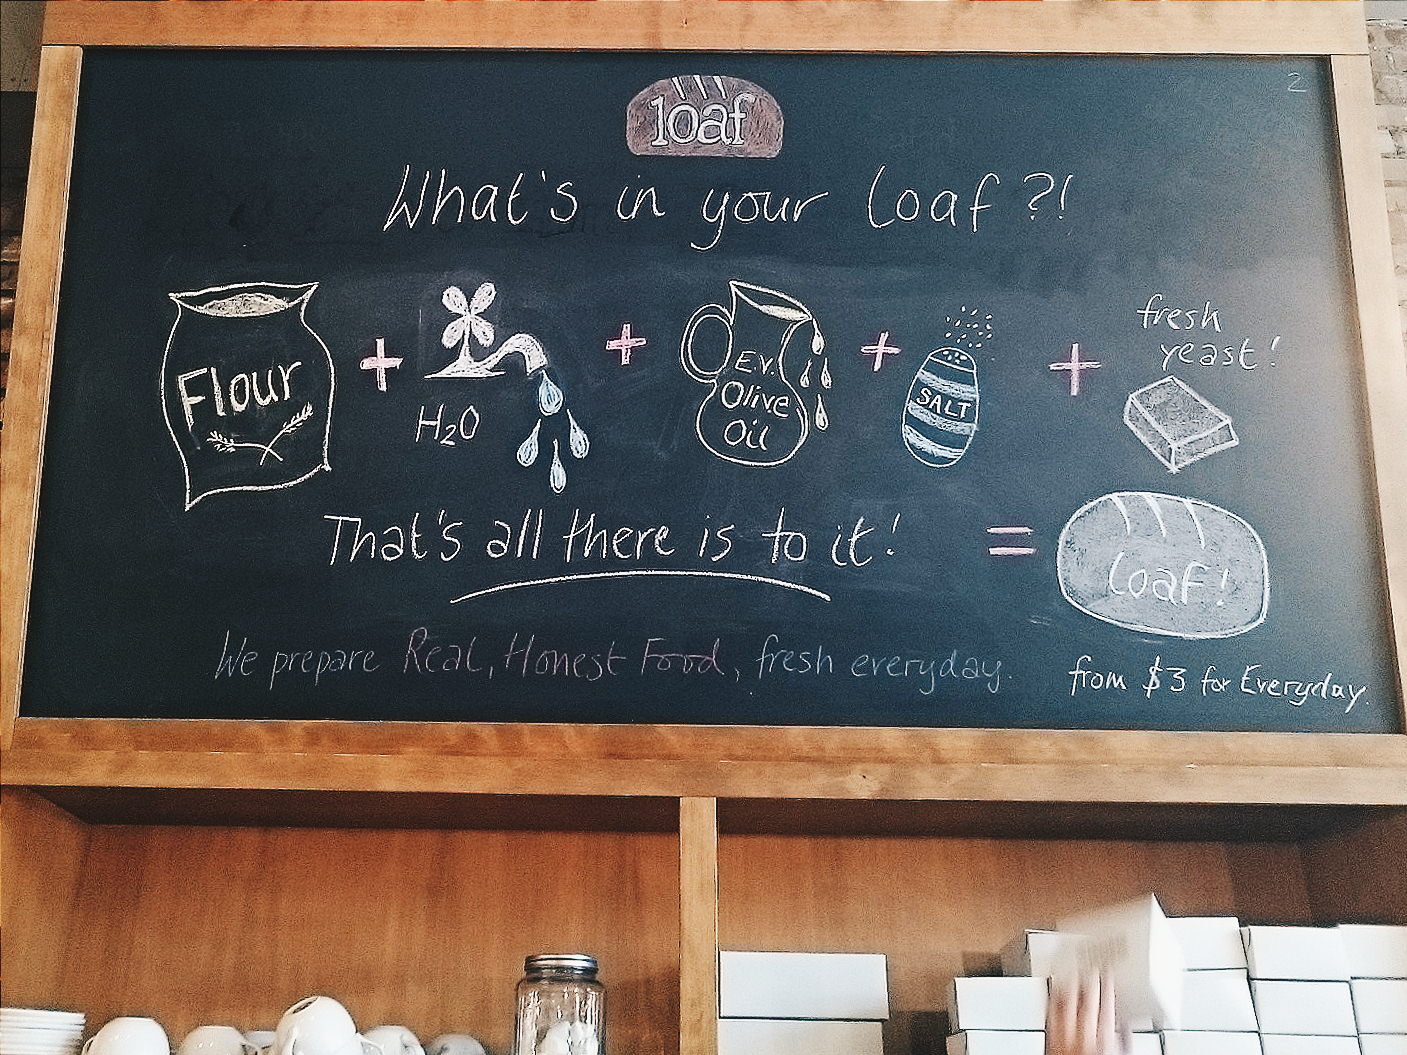 2
loaf
What's in your loaf?!
Flour + H2O + E.V. Olive Oil + SALT + fresh yeast!
That's all there is to it! = loaf!
We prepare Real, Honest Food, fresh everyday.
from $3 for Everyday.